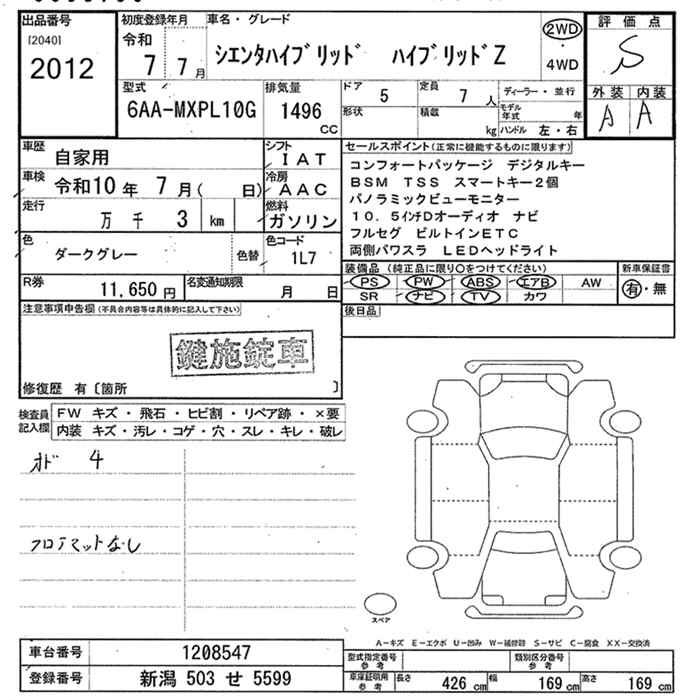 出品番号
[2040]
2012
初度登録年月
令和
7 7月
車名・グレード
シエンタハイブリッド ハイブリッドZ
2WD
・
4WD
評価点
S
外装 内装
A A
型式
6AA-MXPL10G
排気量
1496
CC
ドア
5
定員
7 人
ディーラー・並行
形状
積載
kg
モデル年式 年
ハンドル 左・右
車歴
自家用
シフト
IAT
車検
令和10年 7月( 日)
冷房
AAC
走行
万 千 3 km
燃料
ガソリン
色
ダークグレー
色替
色コード
1L7
R券
11,650円
名変通知期限
月 日
セールスポイント(正常に機能するものに限ります)
コンフォートパッケージ デジタルキー
BSM TSS スマートキー2個
パノラミックビューモニター
10.5インチDオーディオ ナビ
フルセグ ビルトインETC
両側パワスラ LEDヘッドライト
装備品(純正品に限り○をつけてください)
PS PW ABS エアB AW
SR ナビ TV カワ
新車保証書
有・無
後日品
注意事項申告欄(不具合内容等は具体的に記入して下さい)
鍵施錠車
修復歴 有〔箇所 〕
検査員
記入欄
FW キズ・飛石・ヒビ割・リペア跡・×要
内装 キズ・汚レ・コゲ・穴・スレ・キレ・破レ
オド 4
フロアマットなし
スペア
A-キズ E-エクボ U-凹み W-補修跡 S-サビ C-腐食 XX-交換済
車台番号
1208547
登録番号
新潟 503 せ 5599
型式指定番号
参考
類別区分番号
参考
車庫証明用
参考
長さ 426 cm 幅 169 cm 高さ 169 cm